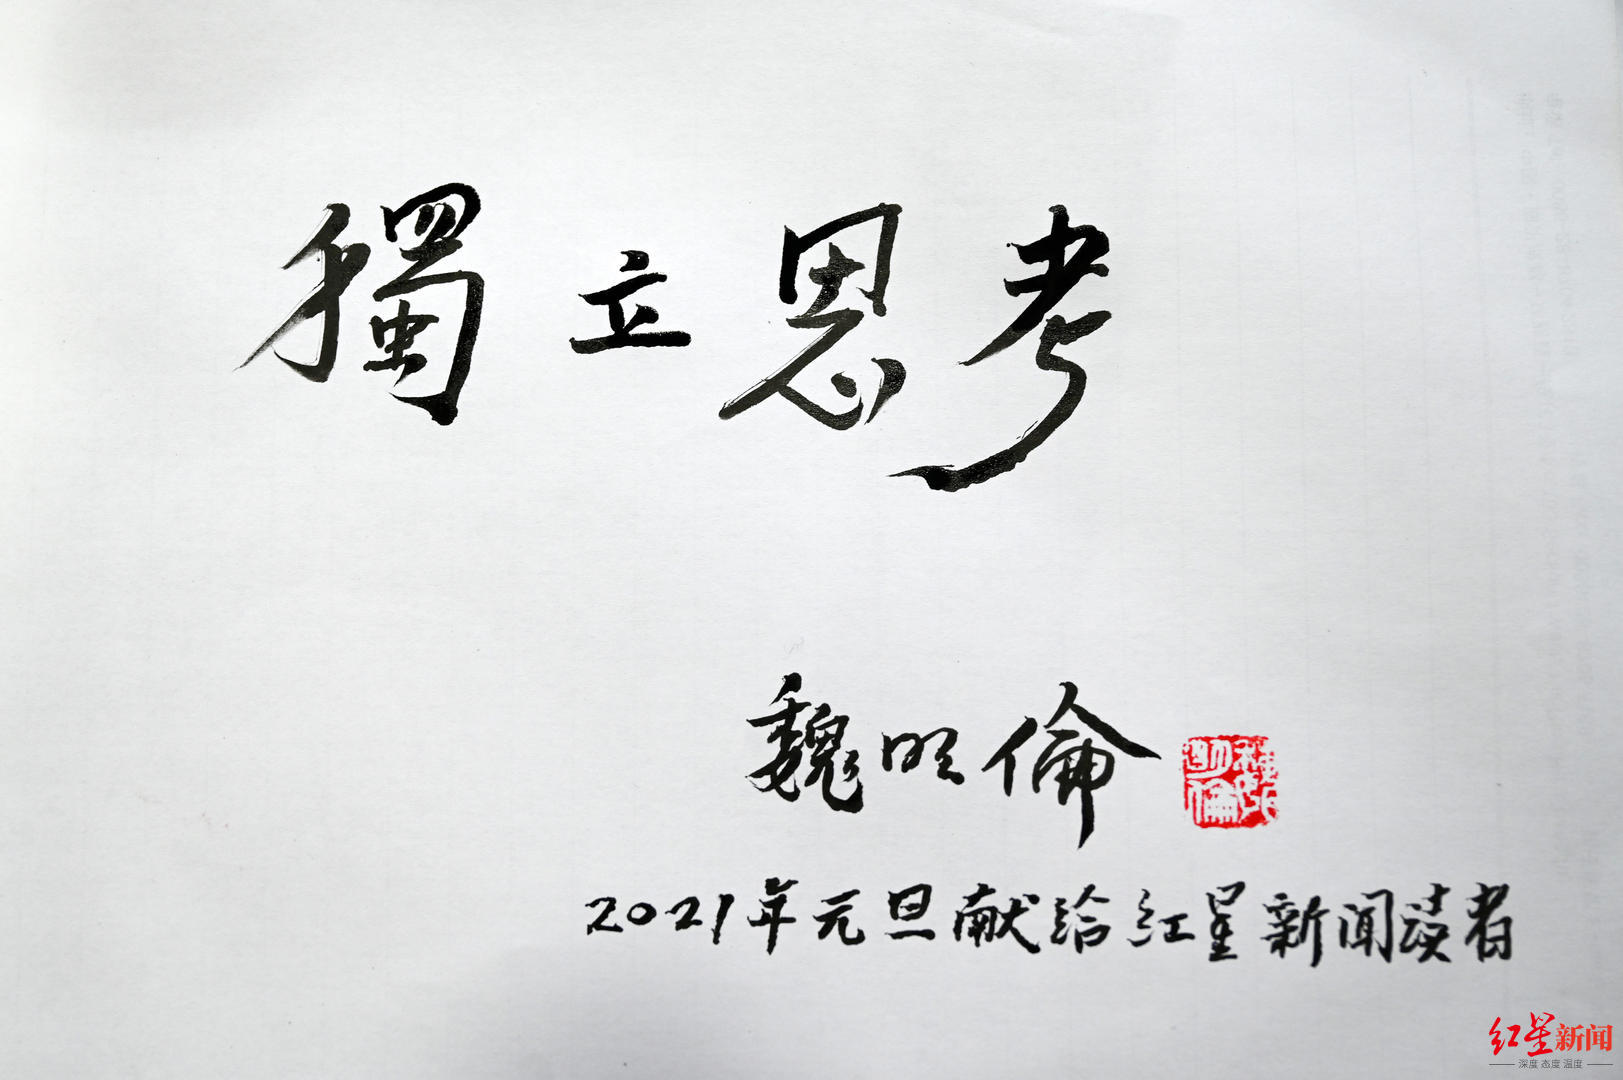 獨立思考
魏明倫
魏明倫
2021年元旦献给红星新闻读者
红星新闻
深度 态度 温度